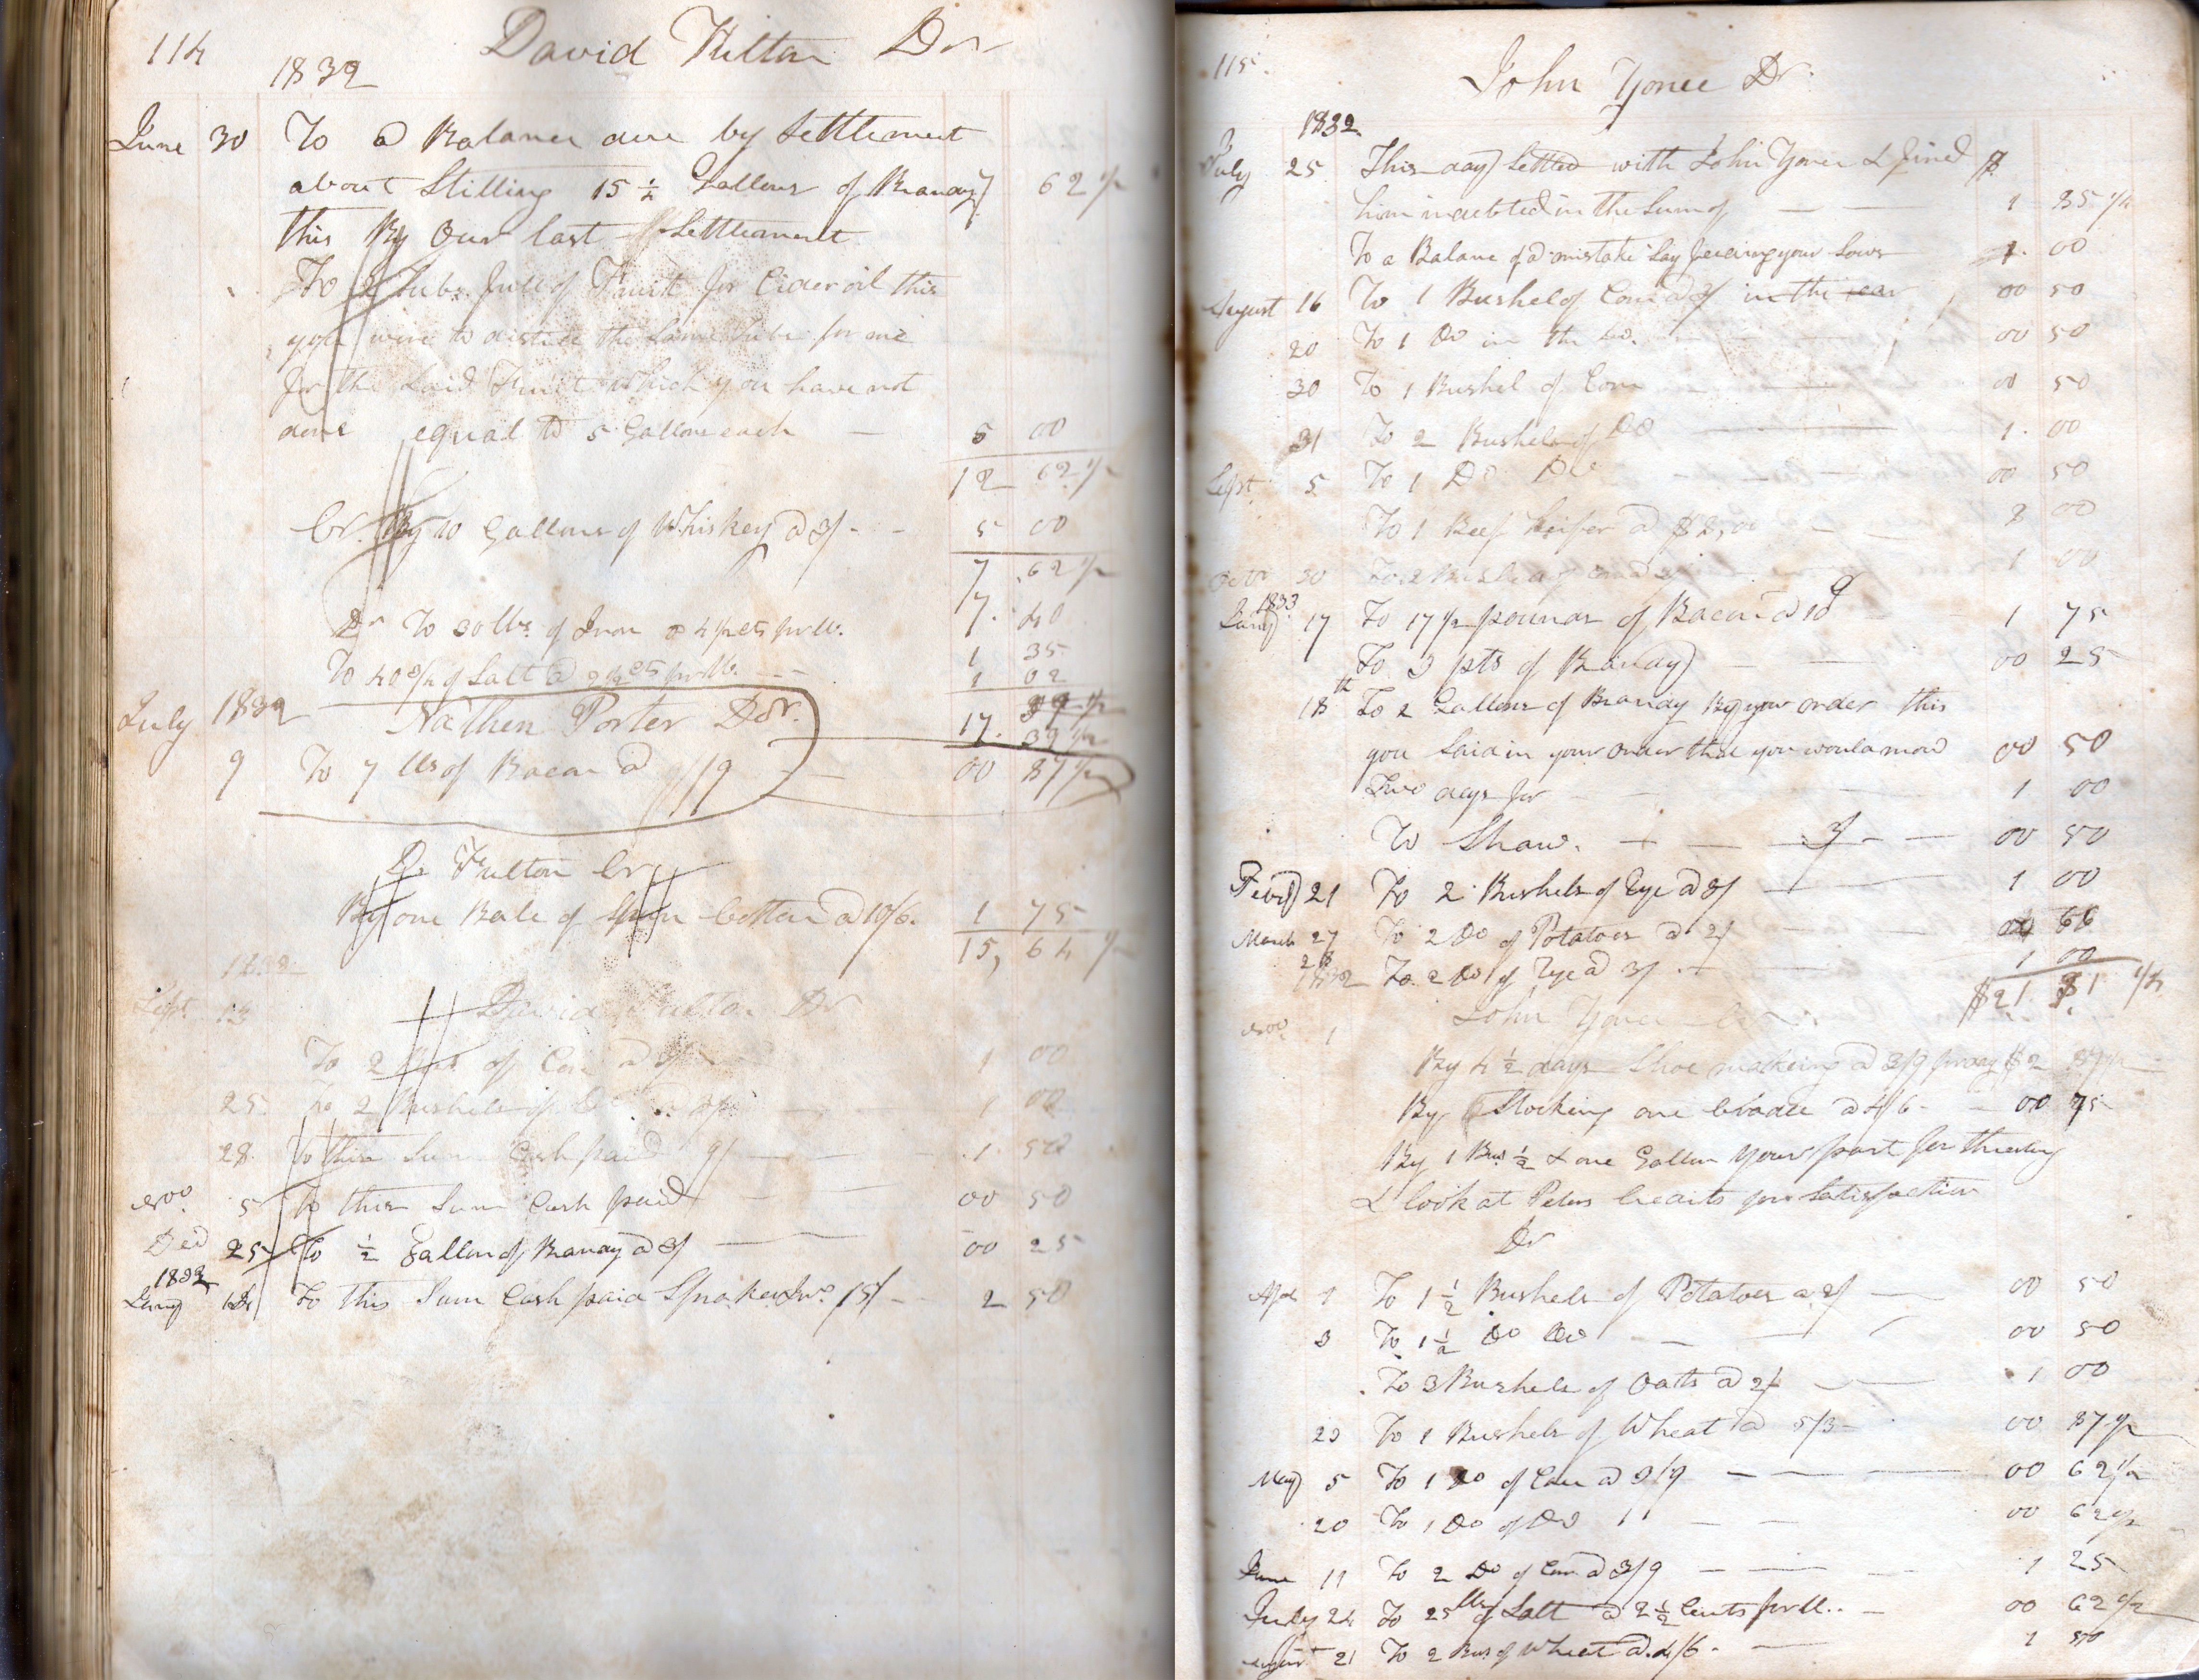 114
David Fulton Dr
1832
June 30 To a Balance due by Settlement
about Stilling 15 1/2 Gallons of Brandy 62 1/2
this By Our last Settlement
To 2 Tubs full of Fruit for Cider oil this
you were to distill the same Tubs for me
for the said Fruit which you have not
done equal to 5 Gallons each 5 00
12 62 1/2
Cr. By 10 Gallons of Whiskey @ 3/ 5 00
7 62 1/2
7. 40
Dr To 30 lbs. of Iron @ 4 1/2 cts pr lb. 1 35
To 40 3/4 of Salt @ 2 1/2 cts pr lb. 1 02
July 1832 Nathen Porter Dr. 17. 39 1/2
9 To 7 lbs of Bacon @ /9 00 87 1/2
D. Fulton Cr
By one Bale of Spun Cotton @ 10/6. 1 75
15, 64 1/2
1832
Sept. 13 David Fulton Dr
To 2 Bus of Corn @ 3/ 1 00
25 To 2 Bushels of Do @ 3/ 1 00
28. To this Sum Cash paid 9/ 1. 50
Nov. 5 To this Sum Cash paid 00 50
Decd 25 To 1/2 Gallon of Brandy @ 3/ 00 25
1833
Jany To this Sum Cash paid Jno. 15/ 2 50
115
John Yonce Dr.
1832
July 25 This day Settled with John Yonce & find $
him indebted in the Sum of 1 85 1/4
To a Balance of a mistake Say feeding your Sows 1. 00
August 16 To 1 Bushel of Corn @ 3/ in the ear 00 50
20 To 1 Do in the Do. 00 50
30 To 1 Bushel of Corn 00 50
31 To 2 Bushels of Do 1. 00
Sept. 5 To 1 Do Do 00 50
To 1 Beef heifer @ $8,00 8 00
Octr 30 To 2 Bushels of Corn @ 3/ 1 00
1833
Jany 17 To 17 1/2 pounds of Bacon @ 10 1 75
To 3 pts of Brandy 00 25
18th To 2 Gallons of Brandy By your order this
you Said in your order that you would mow 00 50
Two days for 1 00
To Shaw. 3/ 00 50
Feby 21 To 2 Bushels of Rye @ 3/ 1 00
March 27 To 2 Do of Potatoes @ 2/ 00 66
28 To 2 Do of Rye @ 3/ 1 00
1832 $21. 81 1/4
Nov. 1 John Yonce Cr
By 4 1/2 days Shoe making @ 3/9 pr day $2
By Stocking one Cradle @ 4/6 00 75
By 1 Bus. 1/2 & one Gallon your part for threshing
& look at Peters Credits your Satisfaction
Dr
Apl 1 To 1 1/2 Bushels of Potatoes @ 2/ 00 50
3 To 1 1/2 Do Do 00 50
To 3 Bushels of Oats @ 2/ 1 00
23 To 1 Bushels of Wheat @ 5/3 00 87 1/2
May 5 To 1 Do of Corn @ 3/9 00 62 1/2
20 To 1 Do of Do 11 00 62 1/2
June 11 To 2 Do of Corn @ 3/9 1 25
July 24 To 25 lbs of Salt @ 2 1/2 Cents pr lb. 00 62 1/2
August 21 To 2 Bus. of Wheat @ 4/6. 1 50